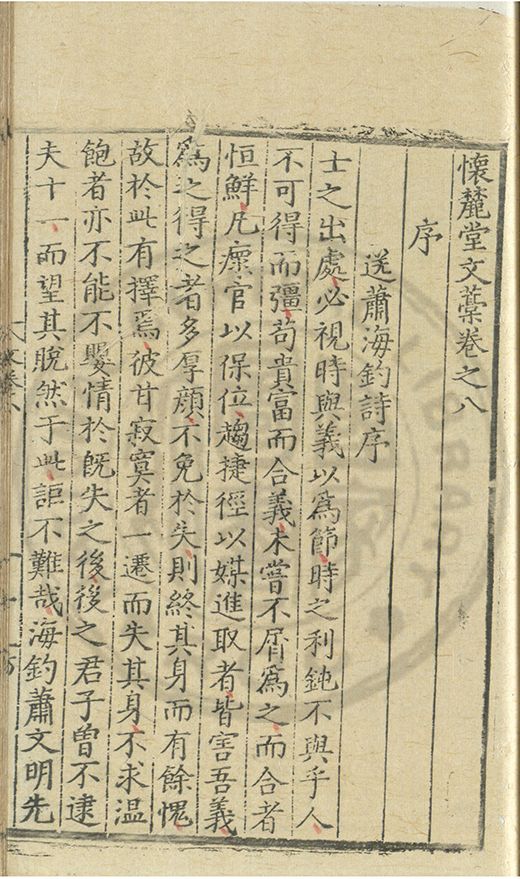 懷麓堂文藁卷之八
序
送蕭海釣詩序
士之出處必視時與義以爲節時之利鈍不與乎人
不可得而彊苟貴富而合義未嘗不屑爲之而合者
恒鮮凡瘝官以保位趨捷徑以媒進取者皆害吾義
爲之得之者多厚顔不免於失則終其身而有餘愧
故於此有擇焉彼甘寂寞者一遷而失其身不求溫
飽者亦不能不嬰情於旣失之後後之君子曾不逮
夫十一而望其脫然于此詎不難哉海釣蕭文明先